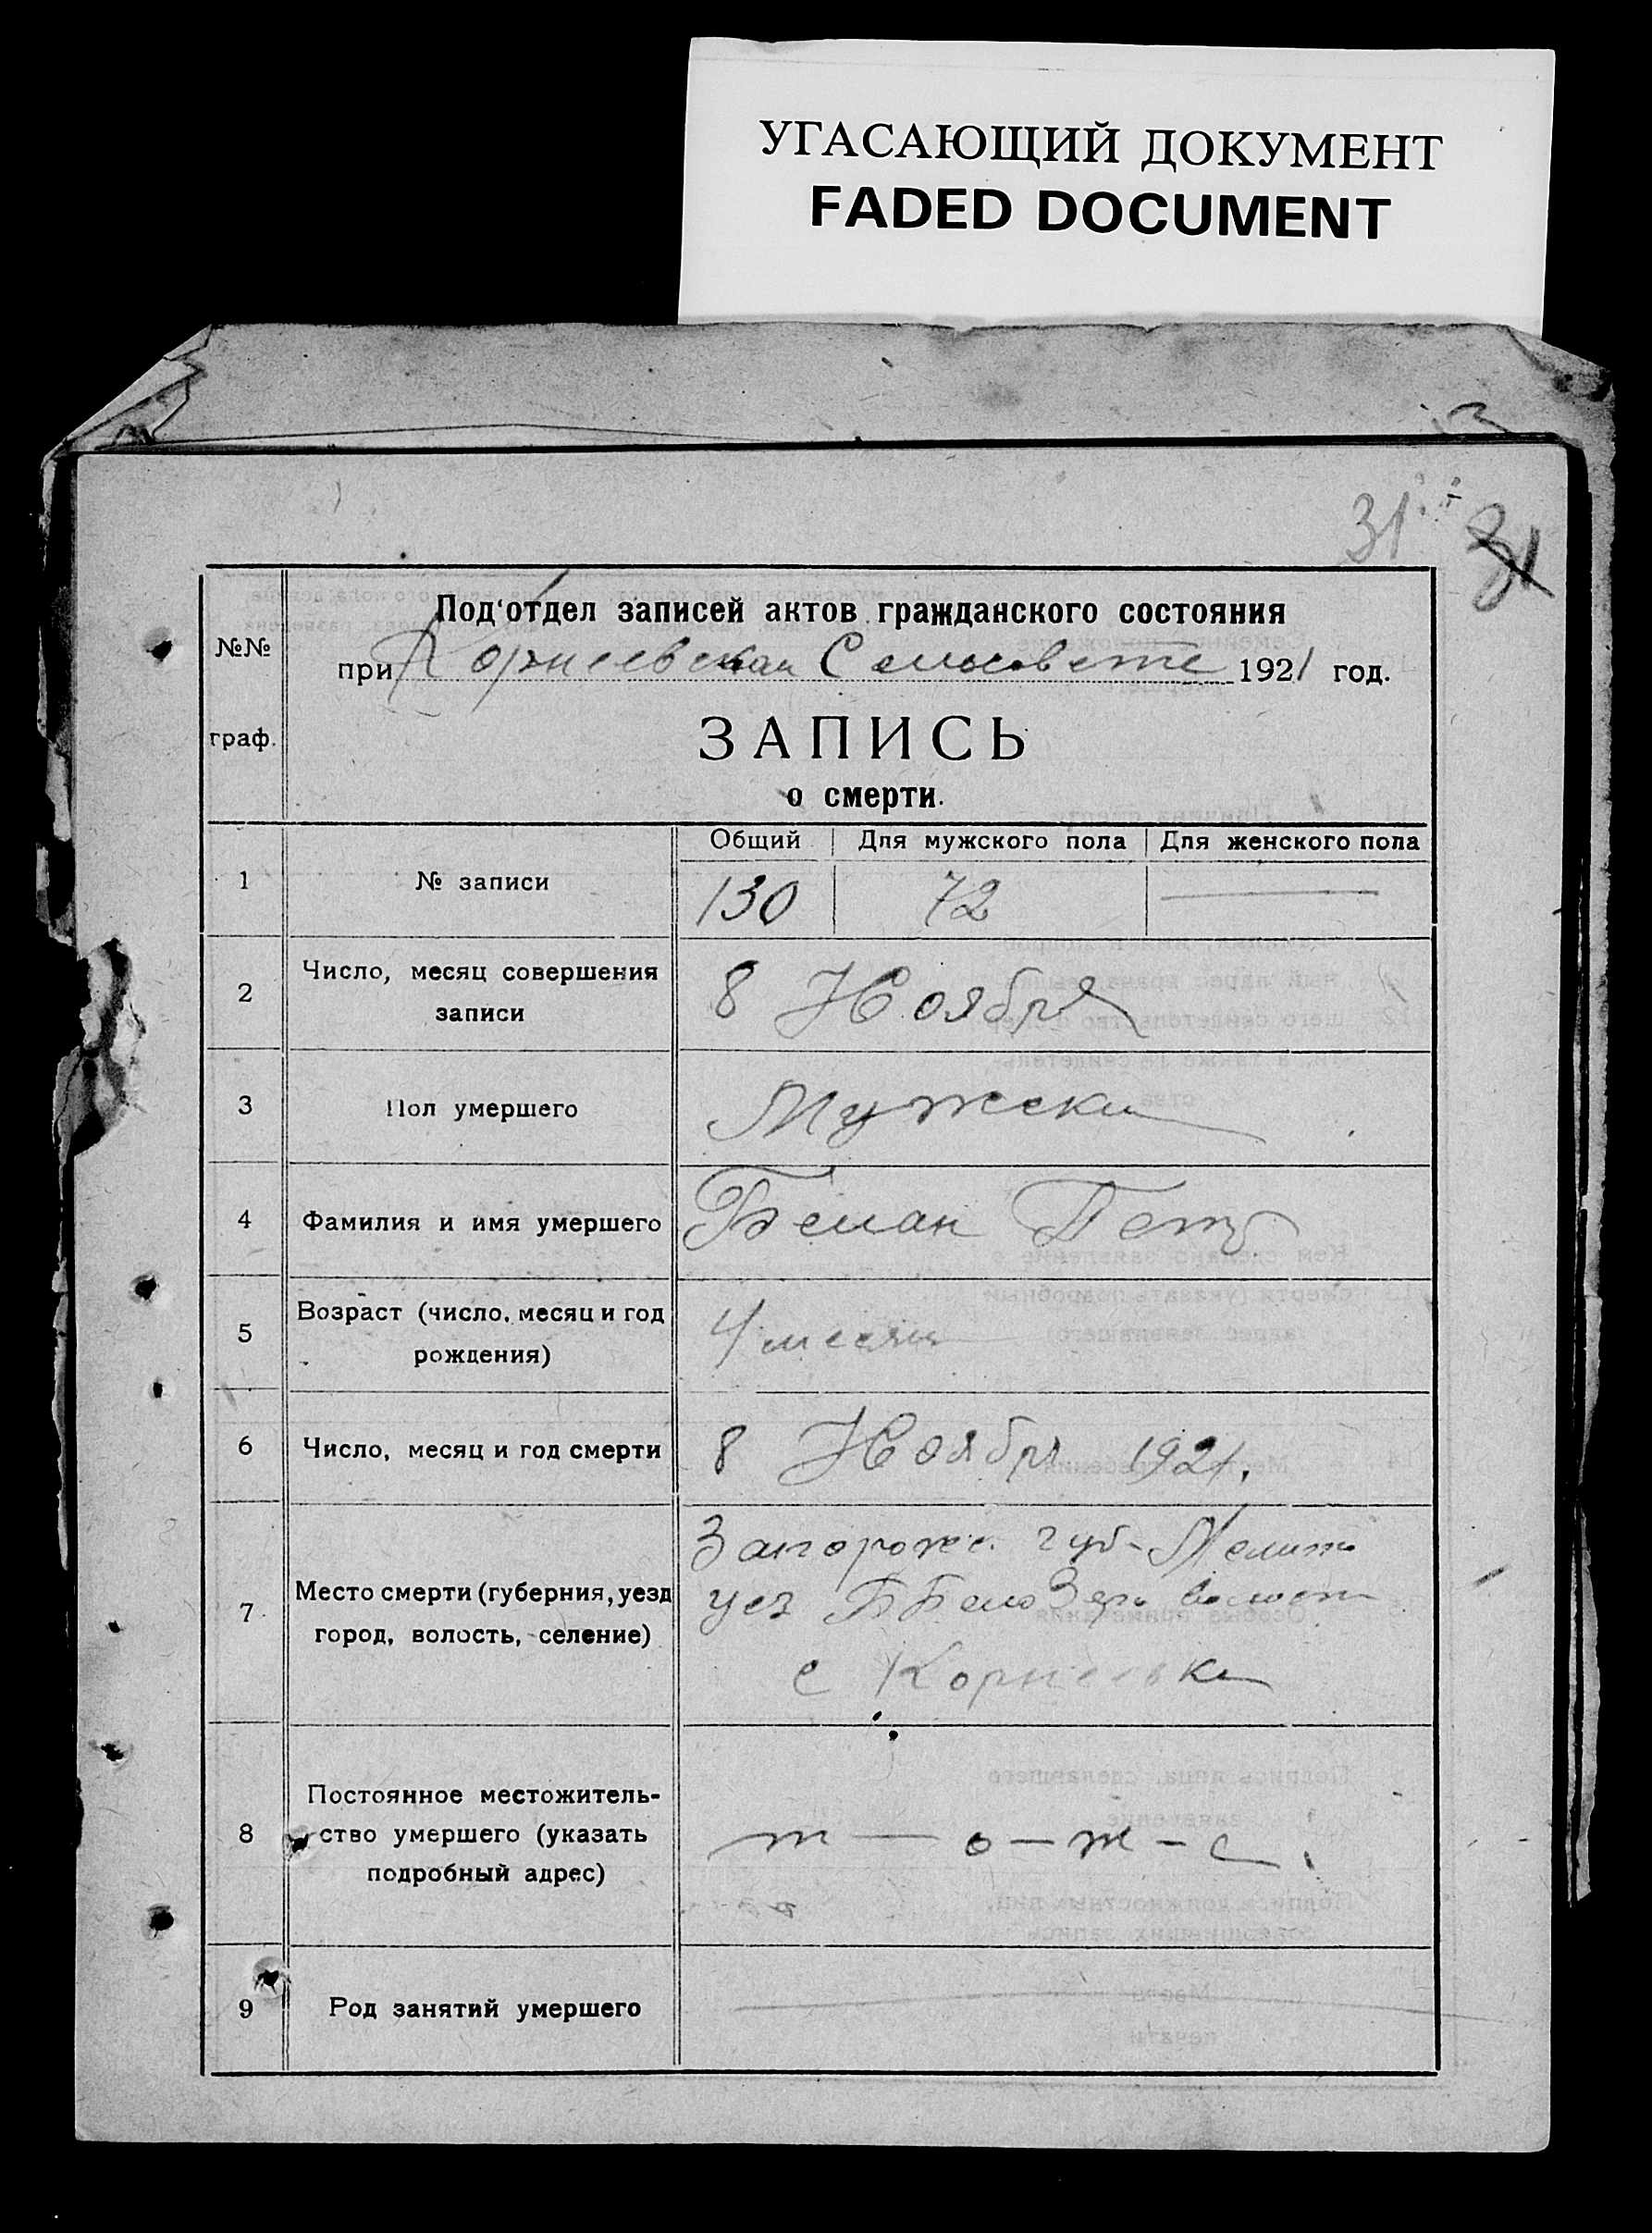 УГАСАЮЩИЙ ДОКУМЕНТ
FADED DOCUMENT
31 31
№№ граф.
Под'отдел записей актов гражданского состояния
при Корнеевском Сельсовете 1921 год.
ЗАПИСЬ
о смерти.
Общий Для мужского пола Для женского пола
1 № записи 130 72 —
2 Число, месяц совершения
записи 8 Ноября
3 Пол умершего Мужски
4 Фамилия и имя умершего Белан Петр
5 Возраст (число, месяц и год
рождения) 4 месяц
6 Число, месяц и год смерти 8 Ноября 1921.
7 Место смерти (губерния, уезд
город, волость, селение)
Запорож. губ - Мелит
уез Б Бело Зер волост
с Корнеевка
8 Постоянное местожитель-
ство умершего (указать
подробный адрес)
т — о — ж — е.
9 Род занятий умершего